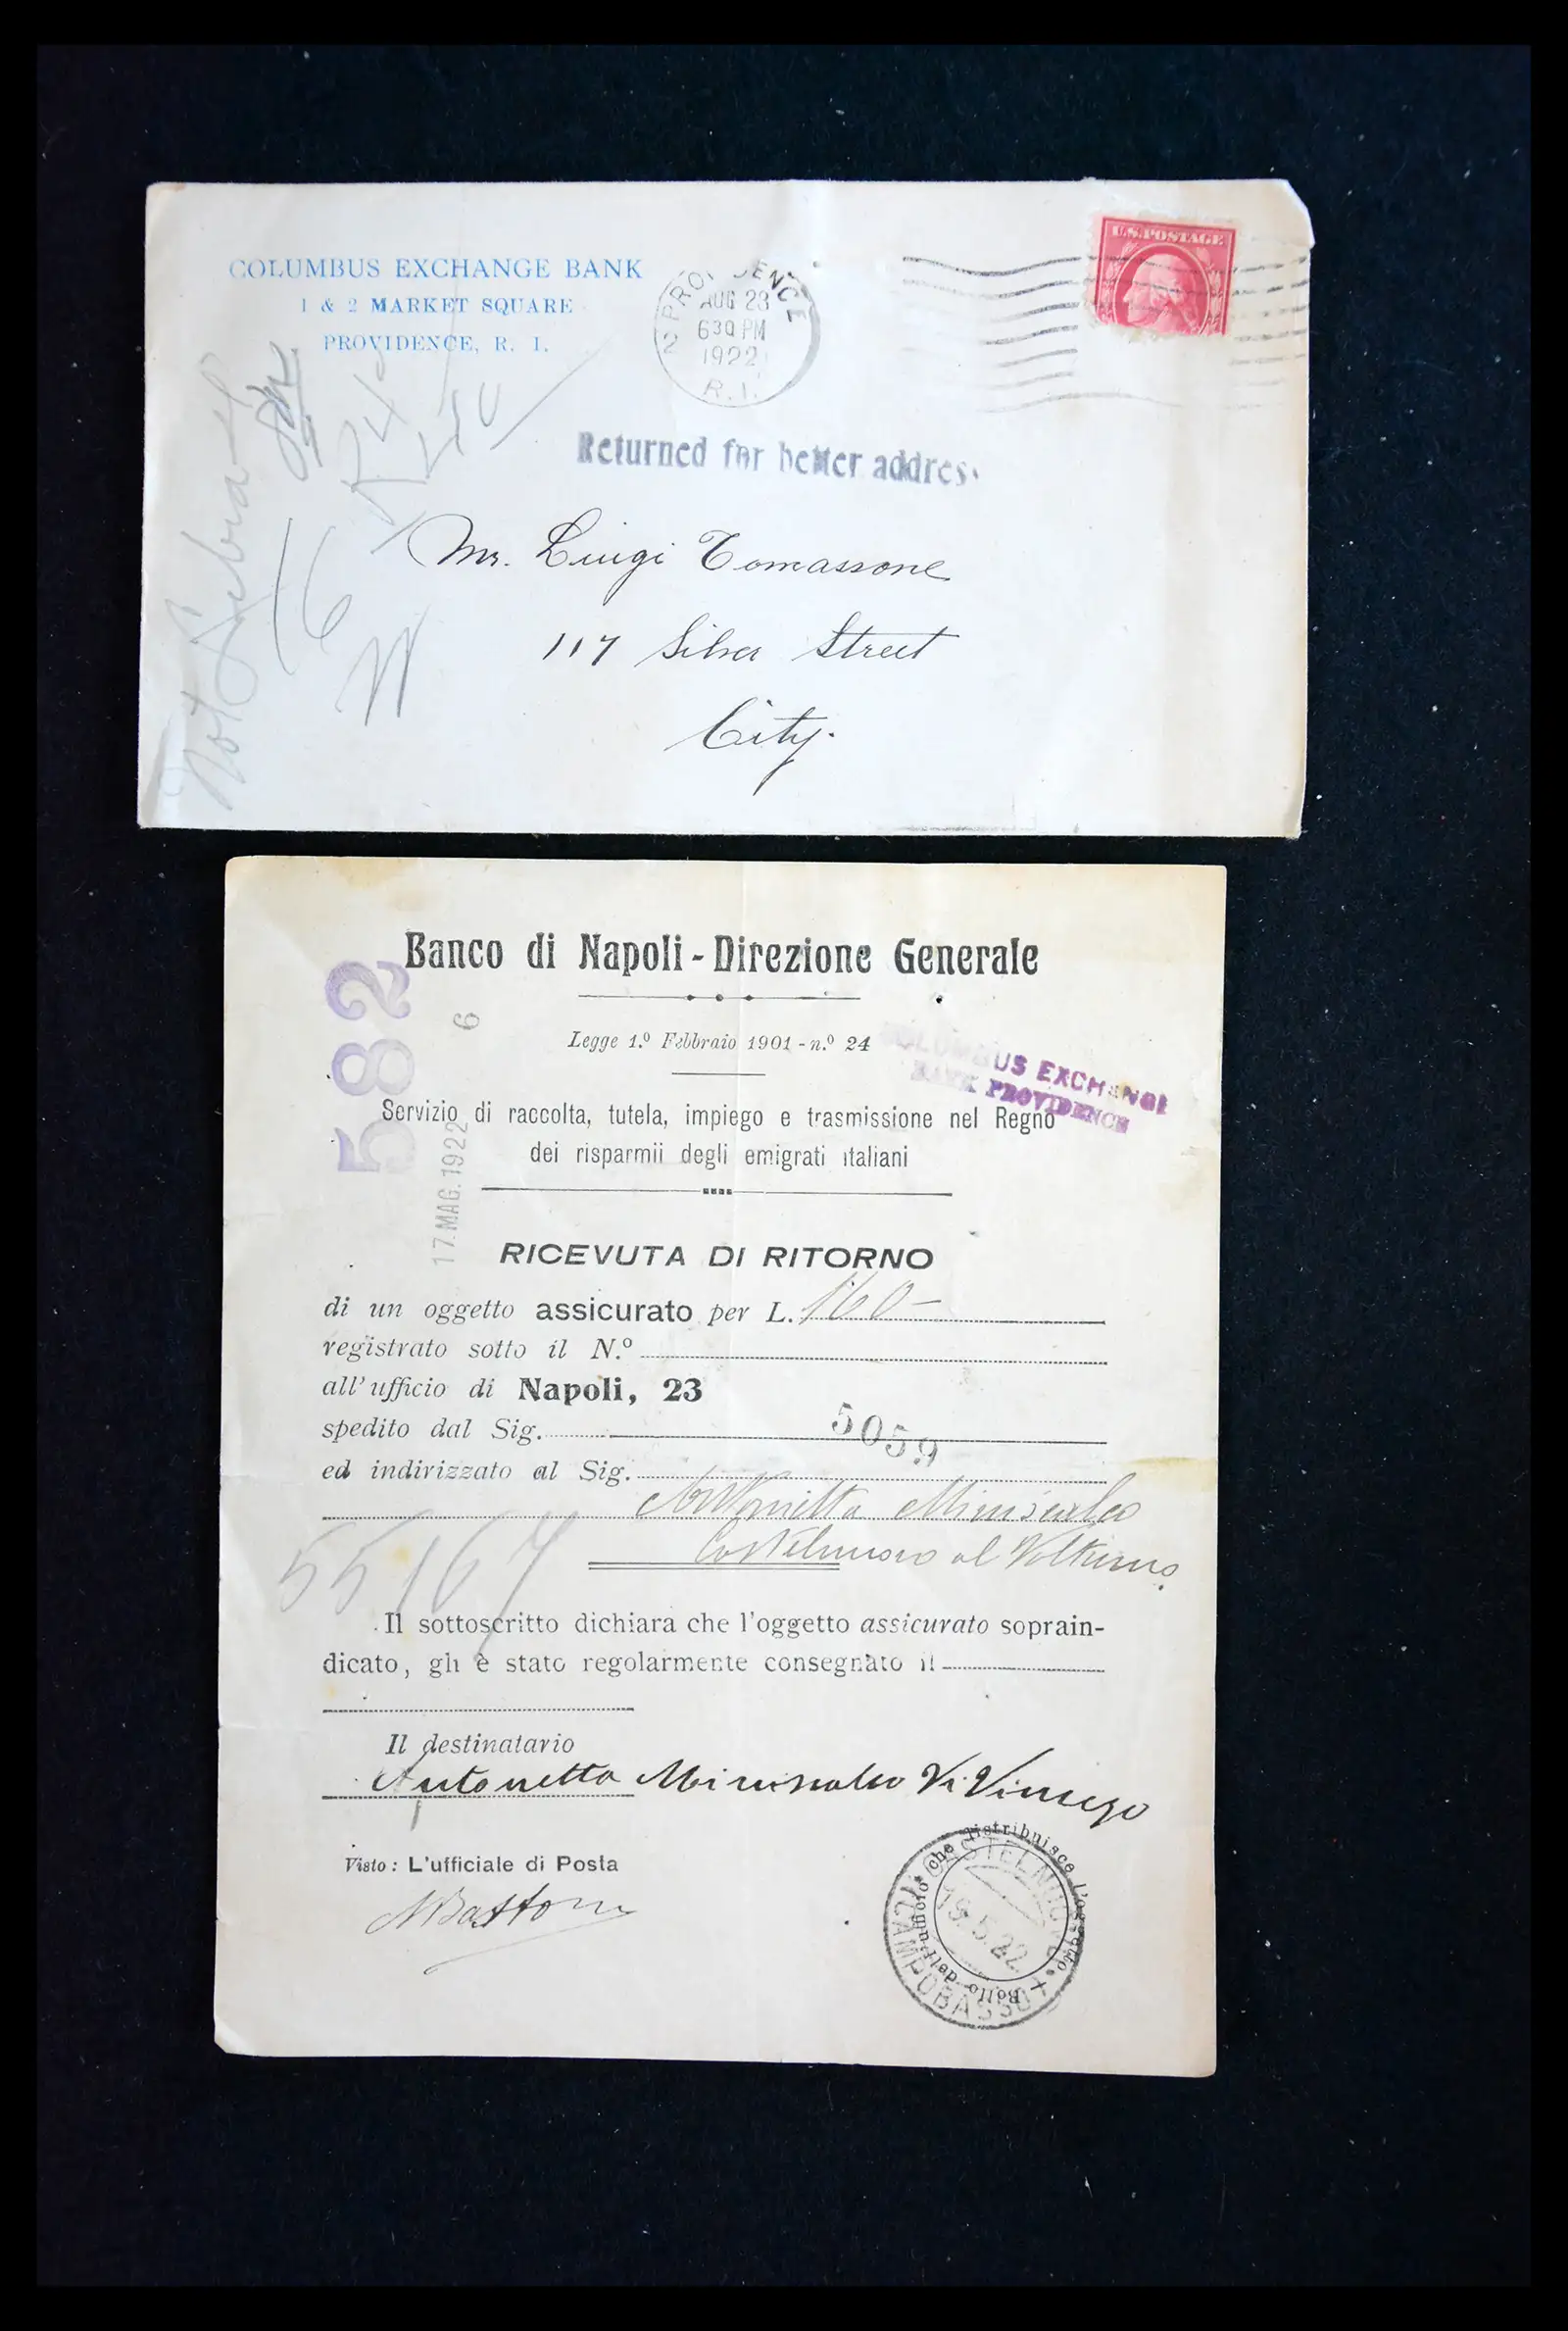 COLUMBUS EXCHANGE BANK
1 & 2 MARKET SQUARE
PROVIDENCE, R. I.
2 PROVIDENCE
AUG 23
630 PM
1922
R.I.
U.S. POSTAGE
Returned for better addres
Mr. Luigi Tomassone
117 Silver Street
City.
Not
16
Banco di Napoli - Direzione Generale
582
6
17.MAG.1922
Legge 1.º Febbraio 1901 - n.º 24
COLUMBUS EXCHANGE
BANK PROVIDENCE
Servizio di raccolta, tutela, impiego e trasmissione nel Regno
dei risparmii degli emigrati italiani
RICEVUTA DI RITORNO
di un oggetto assicurato per L. 160-
registrato sotto il N.º
all'ufficio di Napoli, 23
spedito dal Sig. 5059
ed indirizzato al Sig.
Antonietta Miniscalco
Castelnuovo al Volturno
55167
Il sottoscritto dichiara che l'oggetto assicurato soprain-
dicato, gli è stato regolarmente consegnato il
Il destinatario
Antonetta Miniscalco Di Vincenzo
Visto: L'ufficiale di Posta
Bollo dell'ufficio che distribuisce l'oggetto
CASTELNUOVO
19.5.22
(CAMPOBASSO)